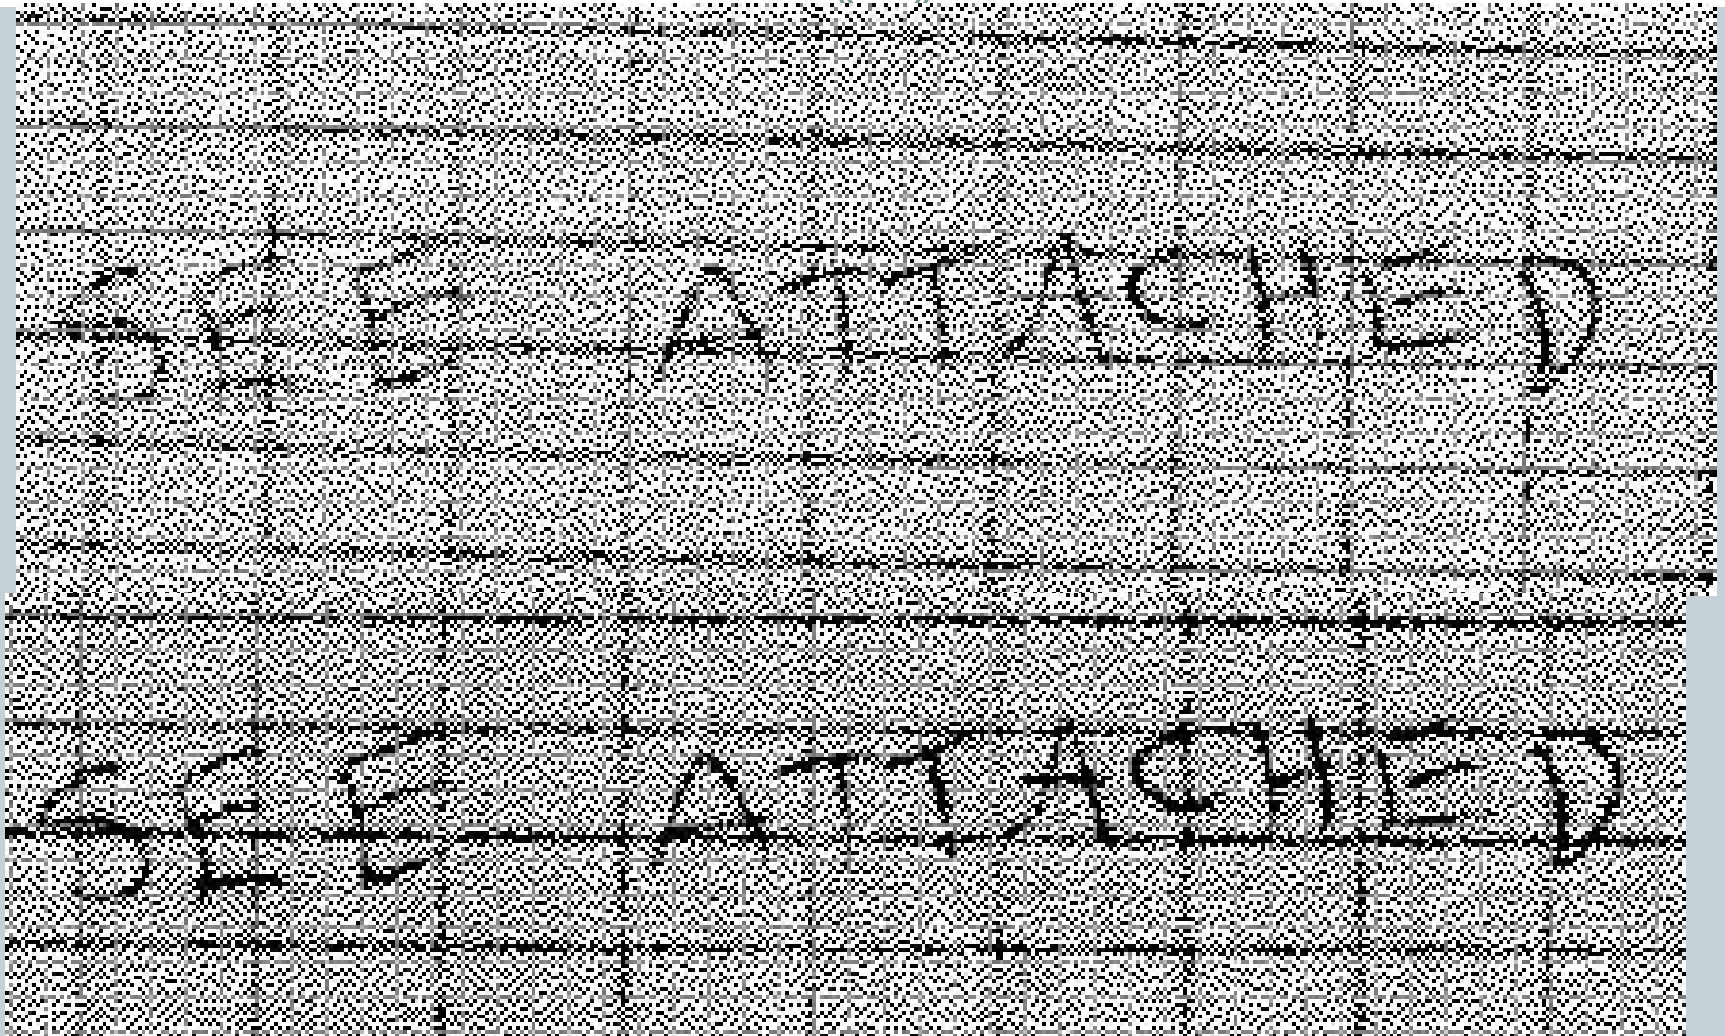 SEE ATTACHED
SEE ATTACHED